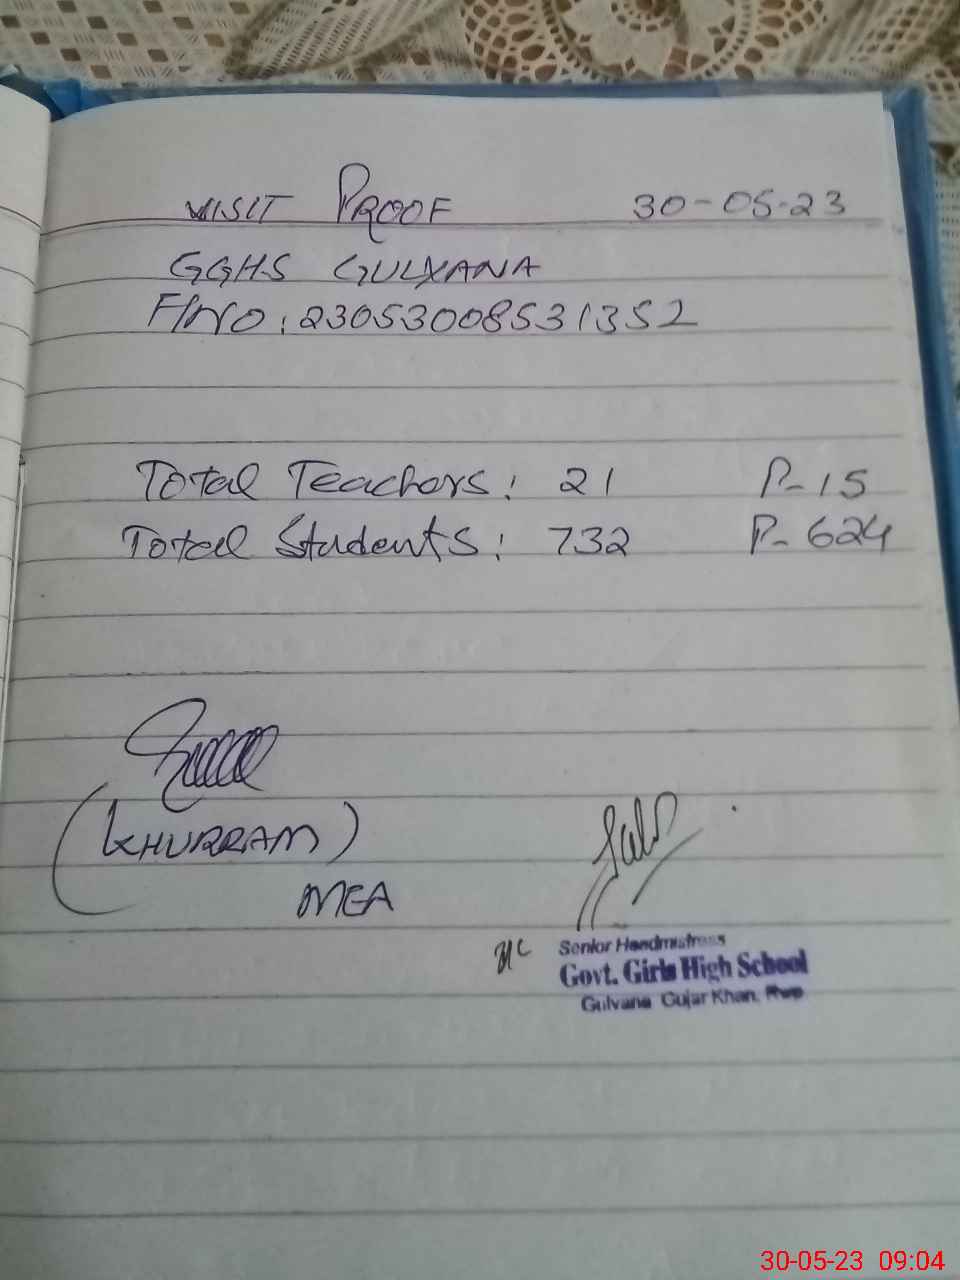 VISIT PROOF 30-05-23
GGHS GULYANA
F/NO: 23053008531352
Total Teachers: 21 P-15
Total Students: 732 P-624
(KHURRAM)
MEA
Senior Headmistress
Govt. Girls High School
Gulyana Gujar Khan, Rwp
30-05-23 09:04